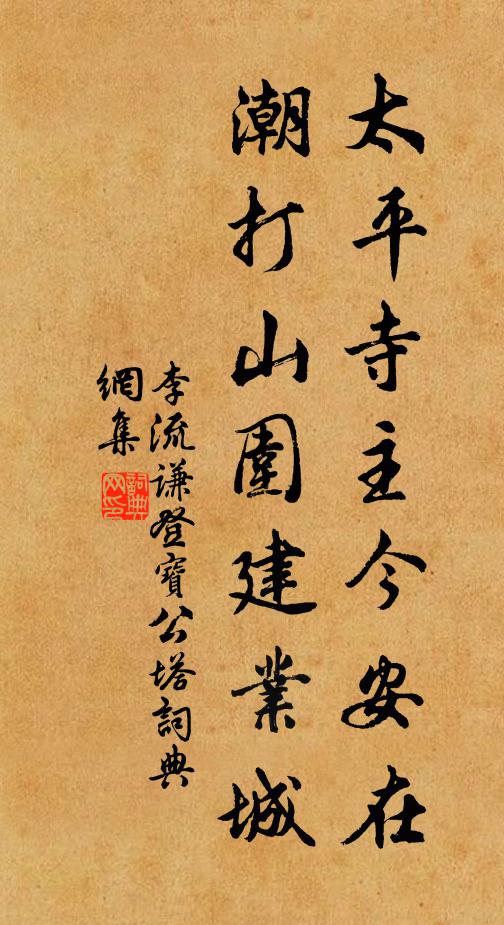 太平寺主今安在
潮打山圍建業城
李流謙登寶公塔詞典
網集
詞典
网印